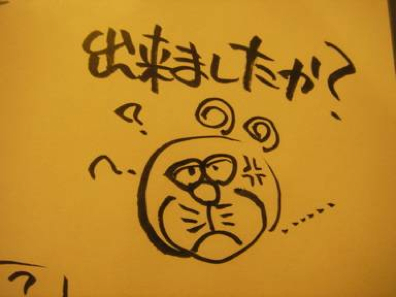 出来ましたか?
?
?